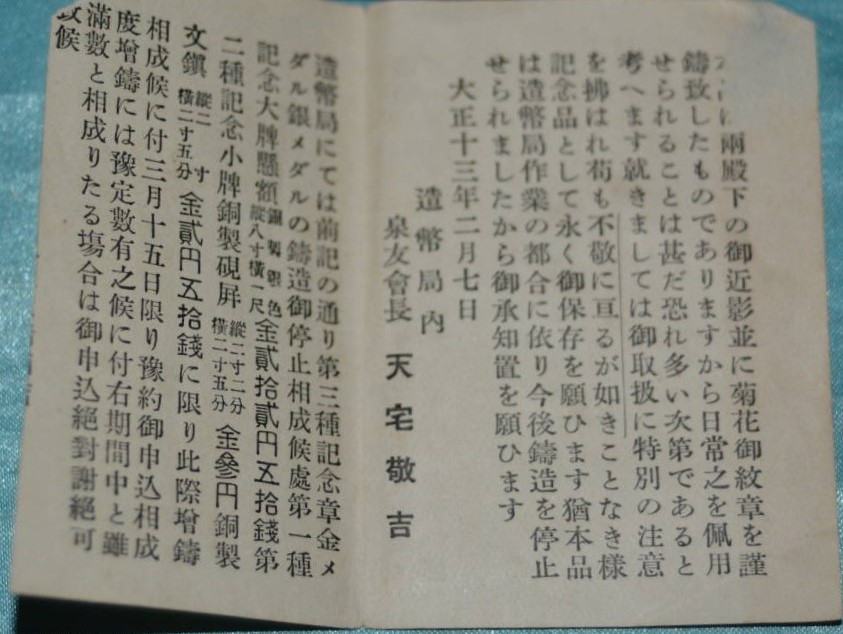 本品は兩殿下の御近影並に菊花御紋章を謹
鑄致したものでありますから日常之を佩用
せられることは甚だ恐れ多い次第であると
考へます就きましては御取扱に特別の注意
を拂はれ荀も不敬に亘るが如きことなき樣
記念品として永く御保存を願ひます猶本品
は造幣局作業の都合に依り今後鑄造を停止
せられましたから御承知置を願ひます
大正十三年二月七日
造幣局內
泉友會長 天宅敬吉
造幣局にては前記の通り第三種記念章金メ
ダル銀メダルの鑄造御停止相成候處第一種
記念大牌懸額銅製銀色縱八寸橫一尺金貳拾貳円五拾錢第
二種記念小牌銅製硯屏縱二寸二分橫二寸五分金參円銅製
文鎭縱二寸橫二寸五分金貳円五拾錢に限り此際增鑄
相成候に付三月十五日限り豫約御申込相成
度增鑄には豫定數有之候に付右期間中と雖
滿數と相成りたる塲合は御申込絕對謝絕可
致候